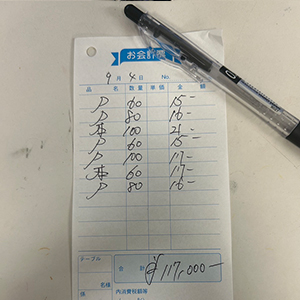 お会計票
9月4日 No.
品名 数量 単価 金額
P 60 15-
P 80 16-
100 21-
P 60 15-
P 100 17-
60 17-
P 80 16-
テーブル
合計 ¥117,000-
名様
係 内消費税額等